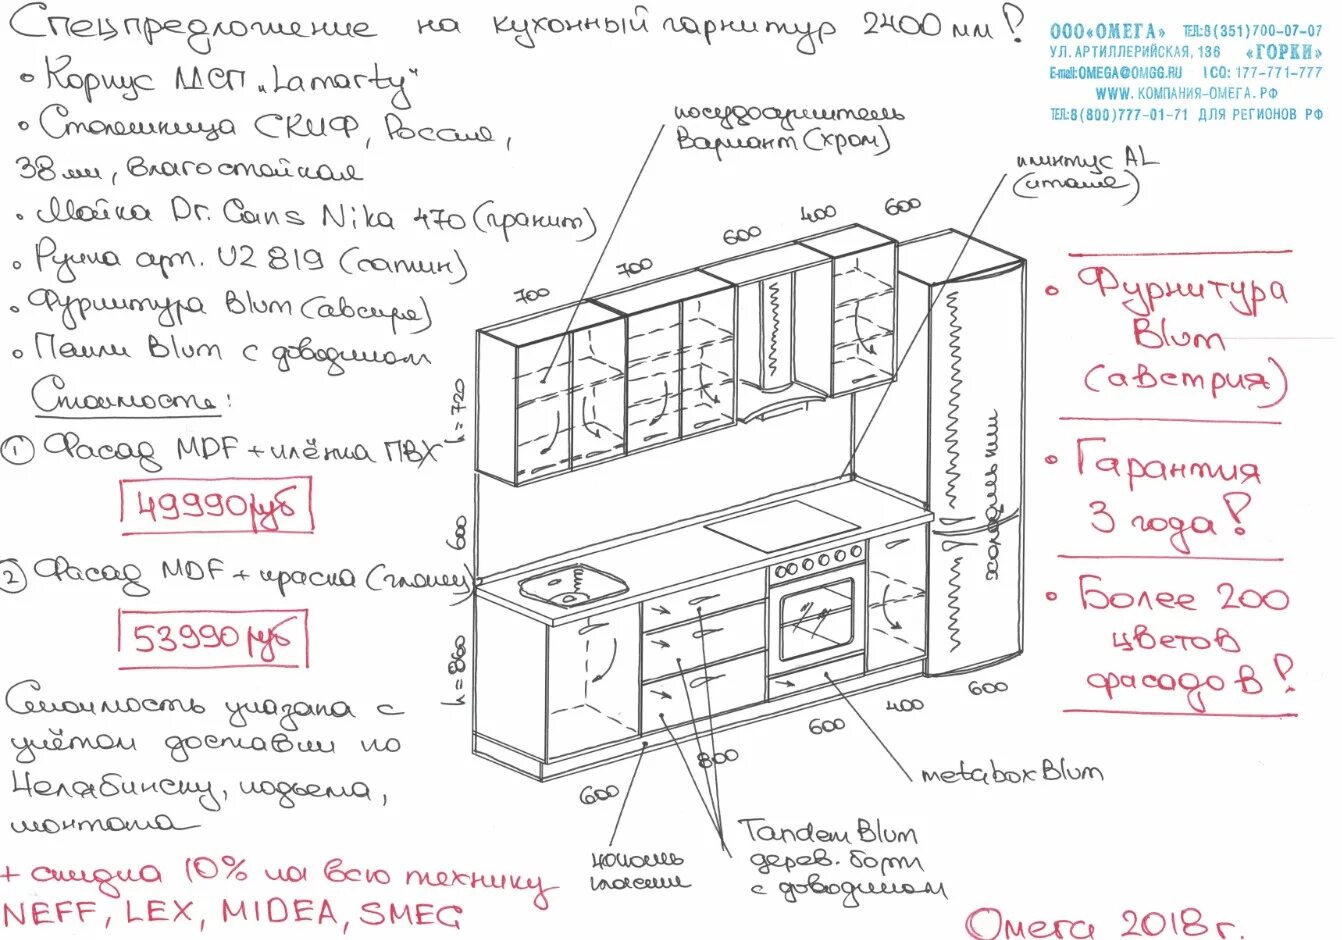 Спецпредложение на кухонный гарнитур 2400 мм!
ООО «ОМЕГА» ТЕЛ:8(351)700-07-07
УЛ. АРТИЛЛЕРИЙСКАЯ, 136 «ГОРКИ»
E-mail:OMEGA@OMGG.RU ICQ: 177-771-777
WWW. КОМПАНИЯ-ОМЕГА. РФ
ТЕЛ:8(800)777-01-71 ДЛЯ РЕГИОНОВ РФ
• Корпус ЛДСП „Lamarty"
• Столешница СКИФ, Россия,
38 мм, влагостойкая
• Мойка Dr. Gans Nika 470 (гранит)
• Ручка арт. U2 819 (сатин)
• Фурнитура Blum (австрия)
• Петли Blum с доводчиком
Стоимость:
① Фасад MDF + плёнка ПВХ
49990 руб
② Фасад MDF + краска (глянец)
53990 руб
Стоимость указана с
учётом доставки по
Челябинску, подъема,
монтажа
+ скидка 10% на всю технику
NEFF, LEX, MIDEA, SMEG
посудосушитель
Вариант (хром)
плинтус AL
(италия)
700
700
600
400
600
h = 720
600
h = 860
холодильник
600
800
600
400
600
metabox Blum
Tandem Blum
дерев. борт
с доводчиком
цоколь
пласти
• Фурнитура
Blum
(австрия)
• Гарантия
3 года!
• Более 200
цветов
фасадов!
Омега 2018 г.